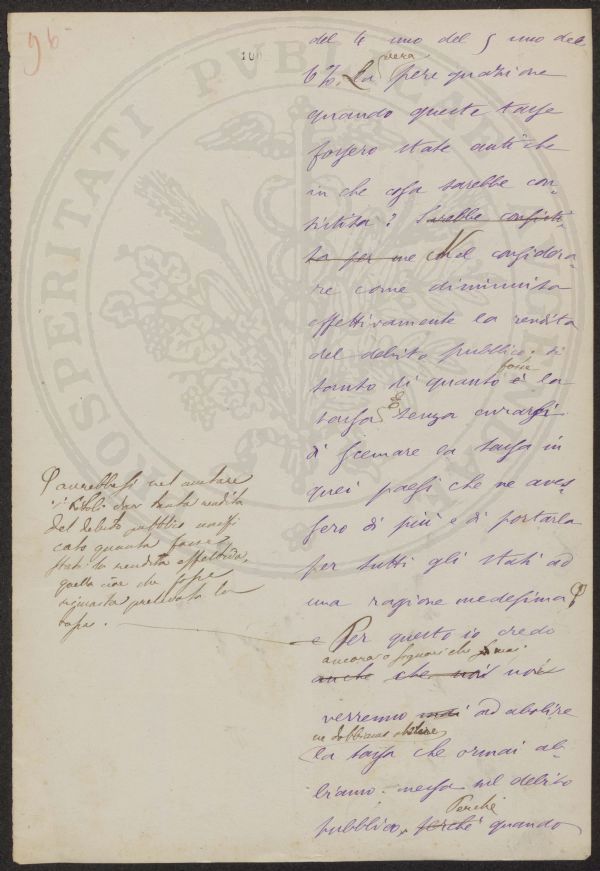 96
106
PROSPERITATI PVBLICAE AVGENDAE
del 4 uno del 5 uno del
6%. La vera perequazione
quando queste tasse
fossero state antiche
in che cosa sarebbe con-
sistita? Sarebbe consisti-
ta per me Nel considera-
re come diminuita
effettivamente la rendita
del debito pubblico di
tanto di quanto è fosse la
tassa E senza curarsi
di scemare la tassa in
quei paesi che ne aves-
sero di più e di portarla
per tutti gli Stati ad
una ragione medesima
e Per questo io credo
ancora o signori che
anche che noi noi
verremo mai ad abolire
ne dobbiamo abolire
la tassa che ormai ab-
biamo messa sul debito
pubblico, perchè Perchè quando
avrebbesi nel mutare
i titoli dar tanta rendita
del debito pubblico unifi
cato quanta fosse
stata la rendita effettiva,
quella cioè che fosse
rimasta prelevata la
tassa.